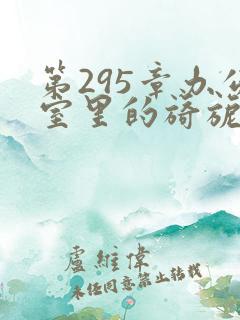 第295章办公
室里的旖旎
盧維偉
未经同意禁止转载